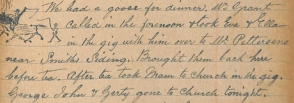 We had a goose for dinner. Mr Grant
called in the forenoon & took Eva & Ella
in the gig with him over to Mr Pettersens
near Smiths Siding. Brought them back here
before tea. After tea took Mam to Church in the gig.
George John & Gerty gone to Church tonight.